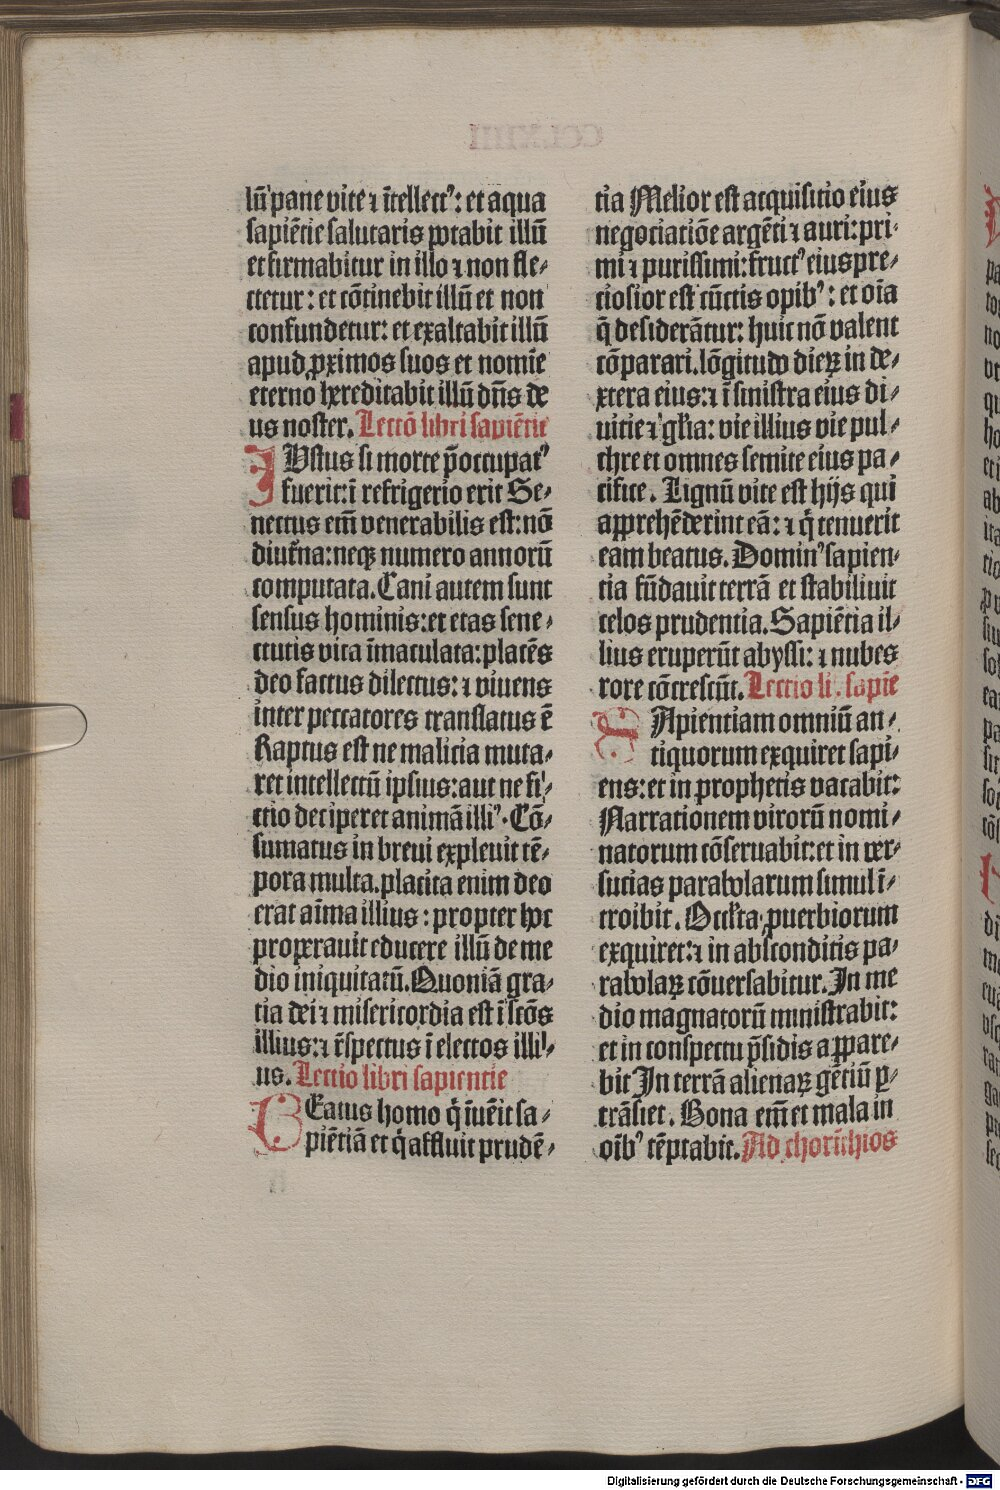 lū pane vite ⁊ ītellectꝰ: et aqua
sapiētie salutaris potabit illū
et firmabitur in illo ⁊ non fle⸗
ctetur: et cōtinebit illū et non
confundetur: et exaltabit illū
apud ꝓximos suos et nomīe
eterno hereditabit illū dn̄s de
us noster. Lectō libri sapiētie
IUstus si morte p̄occupatꝰ
fuerit: ī refrigerio erit Se⸗
nectus em̄ venerabilis est: nō
diut̄na: neqꝫ numero annorū
computata. Cani autem sunt
sensus hominis: et etas sene⸗
ctutis vita īmaculata: placēs
deo factus dilectus: ⁊ viuens
inter peccatores translatus ē
Raptus est ne malicia muta⸗
ret intellectū ipsius: aut ne fi⸗
ctio deciperet animā illiꝰ. Cō⸗
sumatus in breui expleuit tē⸗
pora multa. placita enim deo
erat aīma illius: propter hoc
properauit educere illū de me
dio iniquitatū. Quoniā gra⸗
tia dei ⁊ misericordia est ī scōs
illius: ⁊ r̄spectus ī electos illi⸗
us. Lectio libri sapientie
BEatus homo q̄ īuēit sa⸗
piētiā et q̄ affluit prudē⸗
tia Melior est acquisitio eius
negociatiōe argēti ⁊ auri: pri⸗
mi ⁊ purissimi: fructꝰ eius pre⸗
ciosior est cūctis opibꝰ: et oīa
q̄ desiderātur: huic nō valent
cōparari. lōgitudo dierꝝ in de⸗
xtera eius: ⁊ ī sinistra eius di⸗
uitie ⁊ gl̄ia: vie illius vie pul⸗
chre et omnes semite eius pa⸗
cifice. Lignū vite est hijs qui
apprehēderint eā: ⁊ q̄ tenuerit
eam beatus. Dominꝰ sapien⸗
tia fūdauit terrā et stabiliuit
celos prudentia. Sapiētia il⸗
lius eruperūt abyssi: ⁊ nubes
rore cōcrescūt. Lectio li. sapīe
SApientiam omniū an⸗
tiquorum exquiret sapi⸗
ens: et in prophetis vacabit:
Narrationem virorū nomi⸗
natorum cōseruabit: et in ver⸗
sucias parabolarum simul ī⸗
troibit. Occl̄ta ꝓuerbiorum
exquiret: ⁊ in absconditis pa⸗
rabolaꝝ cōuersabitur. In me
dio magnatorū ministrabit:
et in conspectu p̄sidis appare⸗
bit In terrā alienaꝝ gētiū ꝑ⸗
trāsiet. Bona em̄ et mala in
oībꝰ tēptabit. Ad chorīthios
Digitalisierung gefördert durch die Deutsche Forschungsgemeinschaft - DFG